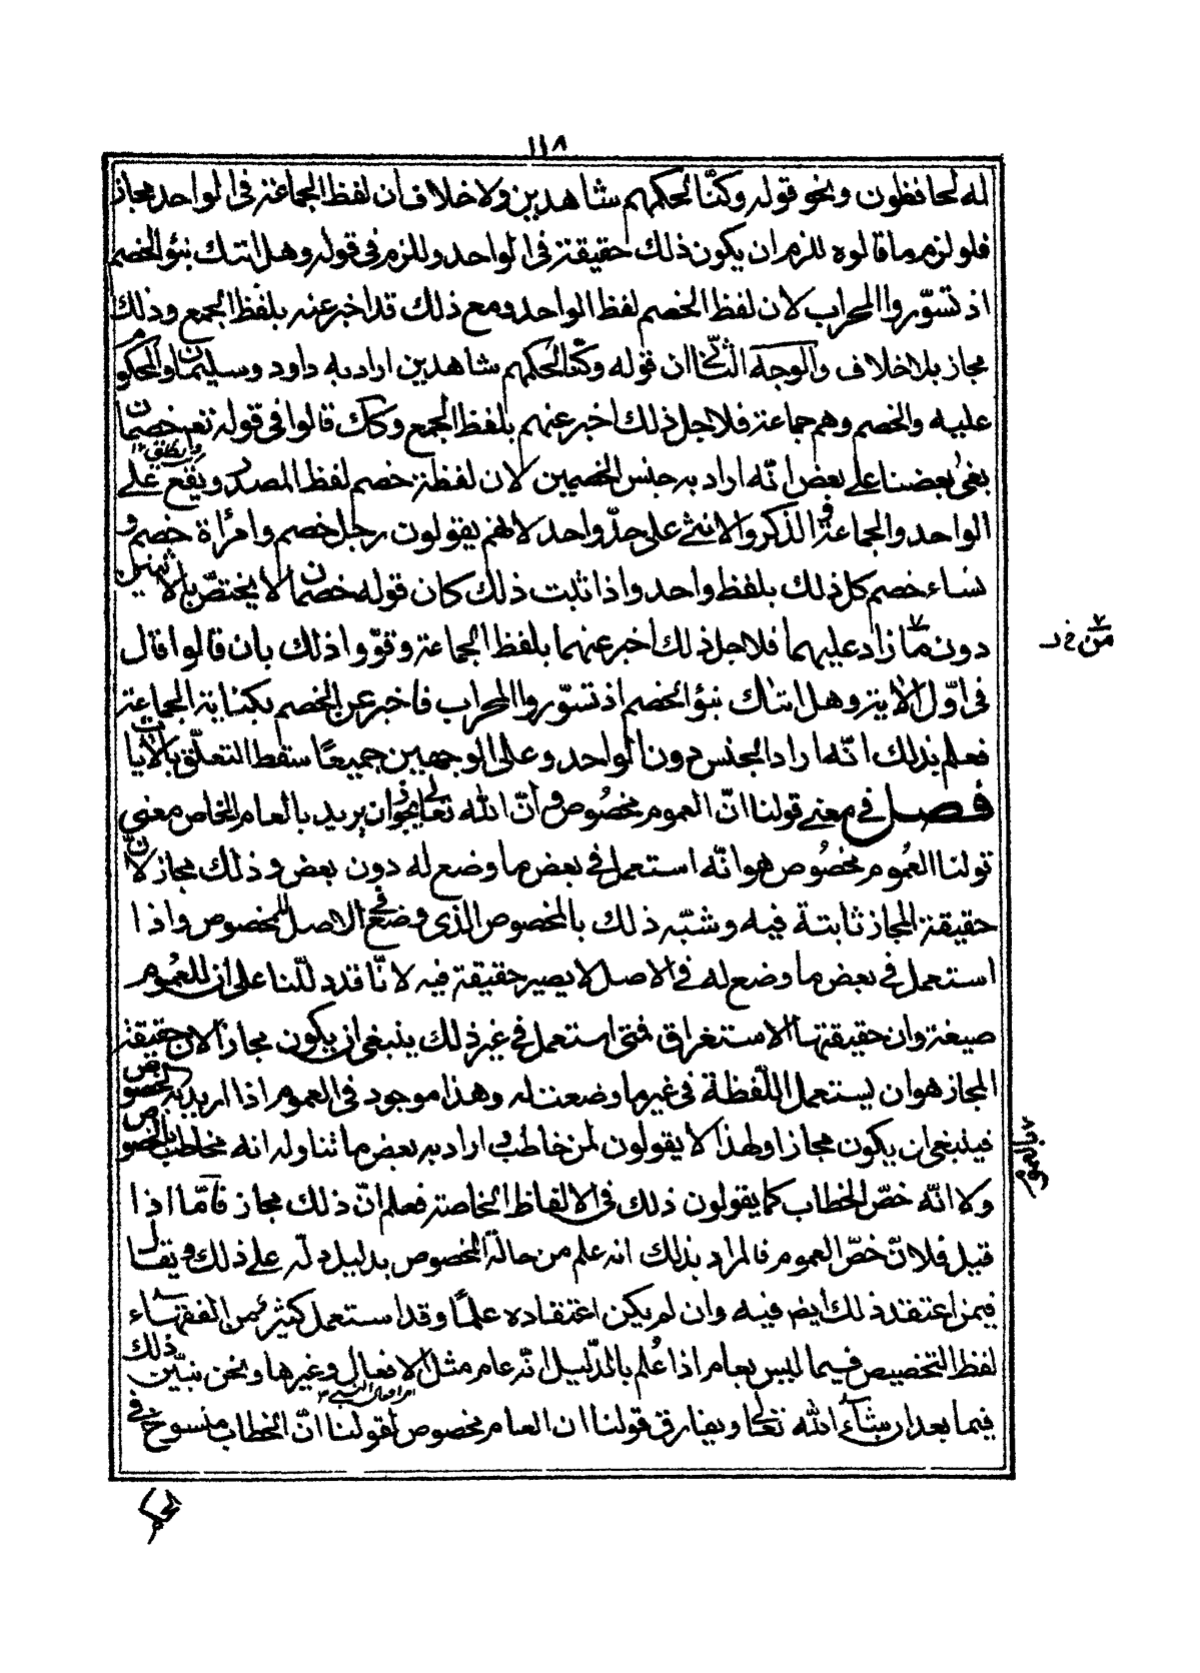 ١١٨
له لحافظون ونحو قوله وكنّا لحكمهم شاهدين ولا خلاف ان لفظ الجماعة فى الواحد مجاز
فلو لزم ما قالوه للزم ان يكون ذلك حقيقة فى الواحد وللزم فى قوله وهل اتيك نبؤ الخصم
اذ تسوّروا المحراب لان لفظ الخصم لفظ الواحد ومع ذلك قد اخبر عنه بلفظ الجمع وذلك
مجاز بلا خلاف والوجه الثانى ان قوله وكنّا لحكمهم شاهدين اراد به داود وسليمان والمحكوم
عليه والخصم وهم جماعة فلاجل ذلك اخبر عنهم بلفظ الجمع وكك قالوا فى قوله تعم خصمان
بغى بعضنا على بعض انّه اراد به جنس الخصمين لان لفظة خصم لفظ المصدر ويقع على
الواحد والجماعة والذكر والانثى على حدّ واحد لانهم يقولون رجل خصم وامرأة خصم و
نساء خصم كل ذلك بلفظ واحد واذا ثبت ذلك كان قوله خصمان لا يختصّ بالاثنين
دون ما زاد عليهما فلاجل ذلك اخبر عنهما بلفظ الجماعة وقوّوا ذلك بان قالوا قال
من خ ر
فى اوّل الاية وهل اتيك نبؤ الخصم اذ تسوّروا المحراب فاخبر عن الخصم بكناية الجماعة
فعلم بذلك انّه اراد الجنس دون الواحد وعلى الوجهين جميعًا سقط التعلّق بالايات
فصل فى معنى قولنا انّ العموم مخصُوص وانّ الله تعالى يجوز ان يريد بالعام الخاص معنى
قولنا العُموم مخصُوص هو انّه استعمل فى بعض ما وضع له دون بعض وذلك مجاز لان
حقيقة المجاز ثابتة فيه وشبّه ذلك بالمخصوص الذى وضع فى الاصل للمخصوص واذا
استعمل فى بعض ما وضع له فى الاصل لا يصير حقيقة فيه لانّا قد دلّلنا على ان للعُموم
صيغة وان حقيقتها الاستغراق فمتى استعمل فى غير ذلك ينبغى ان يكون مجازا لان حقيقة
المجاز هو ان يستعمل اللّفظة فى غير ما وضعت له وهذا موجود فى العموم اذا اريد به الخصوص
فينبغى ان يكون مجازا ولهذا لا يقولون لمن خاطب و اراد به بعض ما تناوله انه مخاطب بالخصوص
ولا انّه خصّ الخطاب كما يقولون ذلك فى الالفاظ الخاصة فعلم انّ ذلك مجاز فامّا اذا
قيل فلانّ خصّ العموم فالمراد بذلك انه علم من حاله المخصوص بدليل دلّه على ذلك ويقال
فيمن اعتقد ذلك ايض فيه وان لم يكن اعتقاده علمًا وقد استعمل كثير من الفقهاء
لفظ التخصيص فيما ليس بعام اذا عُلم بالدّليل انّه عام مثل الافعال وغيرها ونحن نبيّن ذلك
فيما بعد ان شاء الله تعالى ويفارق قولنا ان العام مخصوص لقولنا انّ الخطاب منسوخ فى